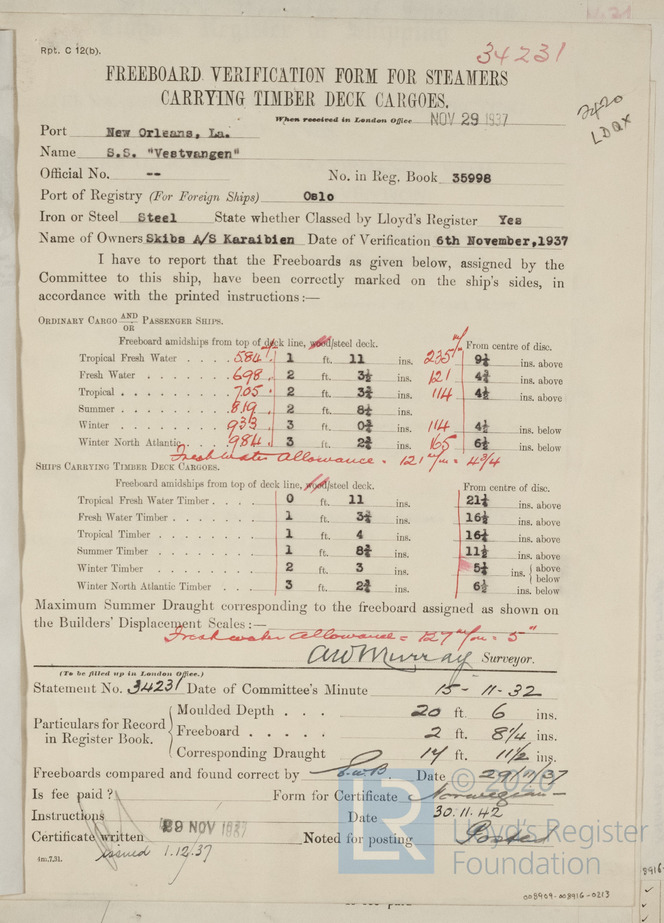 Rpt. C 12(b).
34231
FREEBOARD VERIFICATION FORM FOR STEAMERS
CARRYING TIMBER DECK CARGOES.
2420
LDQX
When received in London Office NOV 29 1937
Port New Orleans, La.
Name S.S. "Vestvangen"
Official No. -- No. in Reg. Book 35998
Port of Registry (For Foreign Ships) Oslo
Iron or Steel Steel State whether Classed by Lloyd's Register Yes
Name of Owners Skibs A/S Karaibien Date of Verification 6th November, 1937
I have to report that the Freeboards as given below, assigned by the
Committee to this ship, have been correctly marked on the ship's sides, in
accordance with the printed instructions:—
ORDINARY CARGO AND/OR PASSENGER SHIPS.
Freeboard amidships from top of deck line, wood/steel deck. m/m From centre of disc.
Tropical Fresh Water . . . . 584 1 ft. 11 ins. 235 9¼ ins. above
Fresh Water . . . . . . . 698 2 ft. 3½ ins. 121 4¾ ins. above
Tropical . . . . . . . . 705 2 ft. 3¾ ins. 114 4½ ins. above
Summer . . . . . . . . 819 2 ft. 8¼ ins.
Winter . . . . . . . . 933 3 ft. 0¾ ins. 114 4½ ins. below
Winter North Atlantic . . 984 3 ft. 2¾ ins. 165 6½ ins. below
Freshwater Allowance = 121 m/m = 4 3/4
SHIPS CARRYING TIMBER DECK CARGOES.
Freeboard amidships from top of deck line, wood/steel deck. From centre of disc.
Tropical Fresh Water Timber . . . . 0 ft. 11 ins. 21¼ ins. above
Fresh Water Timber . . . . . . . 1 ft. 3¾ ins. 16½ ins. above
Tropical Timber . . . . . . . 1 ft. 4 ins. 16¼ ins. above
Summer Timber . . . . . . . 1 ft. 8¾ ins. 11½ ins. above
Winter Timber . . . . . . . 2 ft. 3 ins. 5¼ ins. { above
below
Winter North Atlantic Timber . . . 3 ft. 2¾ ins. 6½ ins. below
Maximum Summer Draught corresponding to the freeboard assigned as shown on
the Builders' Displacement Scales:—
Freshwater Allowance = 127 m/m = 5"
AW Murray Surveyor.
(To be filled up in London Office.)
Statement No. 34231 Date of Committee's Minute 15-11-32
Particulars for Record in Register Book.
Moulded Depth . . . 20 ft. 6 ins.
Freeboard . . . . . 2 ft. 8 1/4 ins.
Corresponding Draught 17 ft. 11 1/2 ins.
Freeboards compared and found correct by Date 29/11/37
Is fee paid? Form for Certificate Norwegian
Instructions Date 30.11.42
Certificate written 29 NOV 1937 Noted for posting Posted
issued 1.12.37
tm.7.31.
© 2020
LR
Lloyd's Register
Foundation
008909-008916-0213